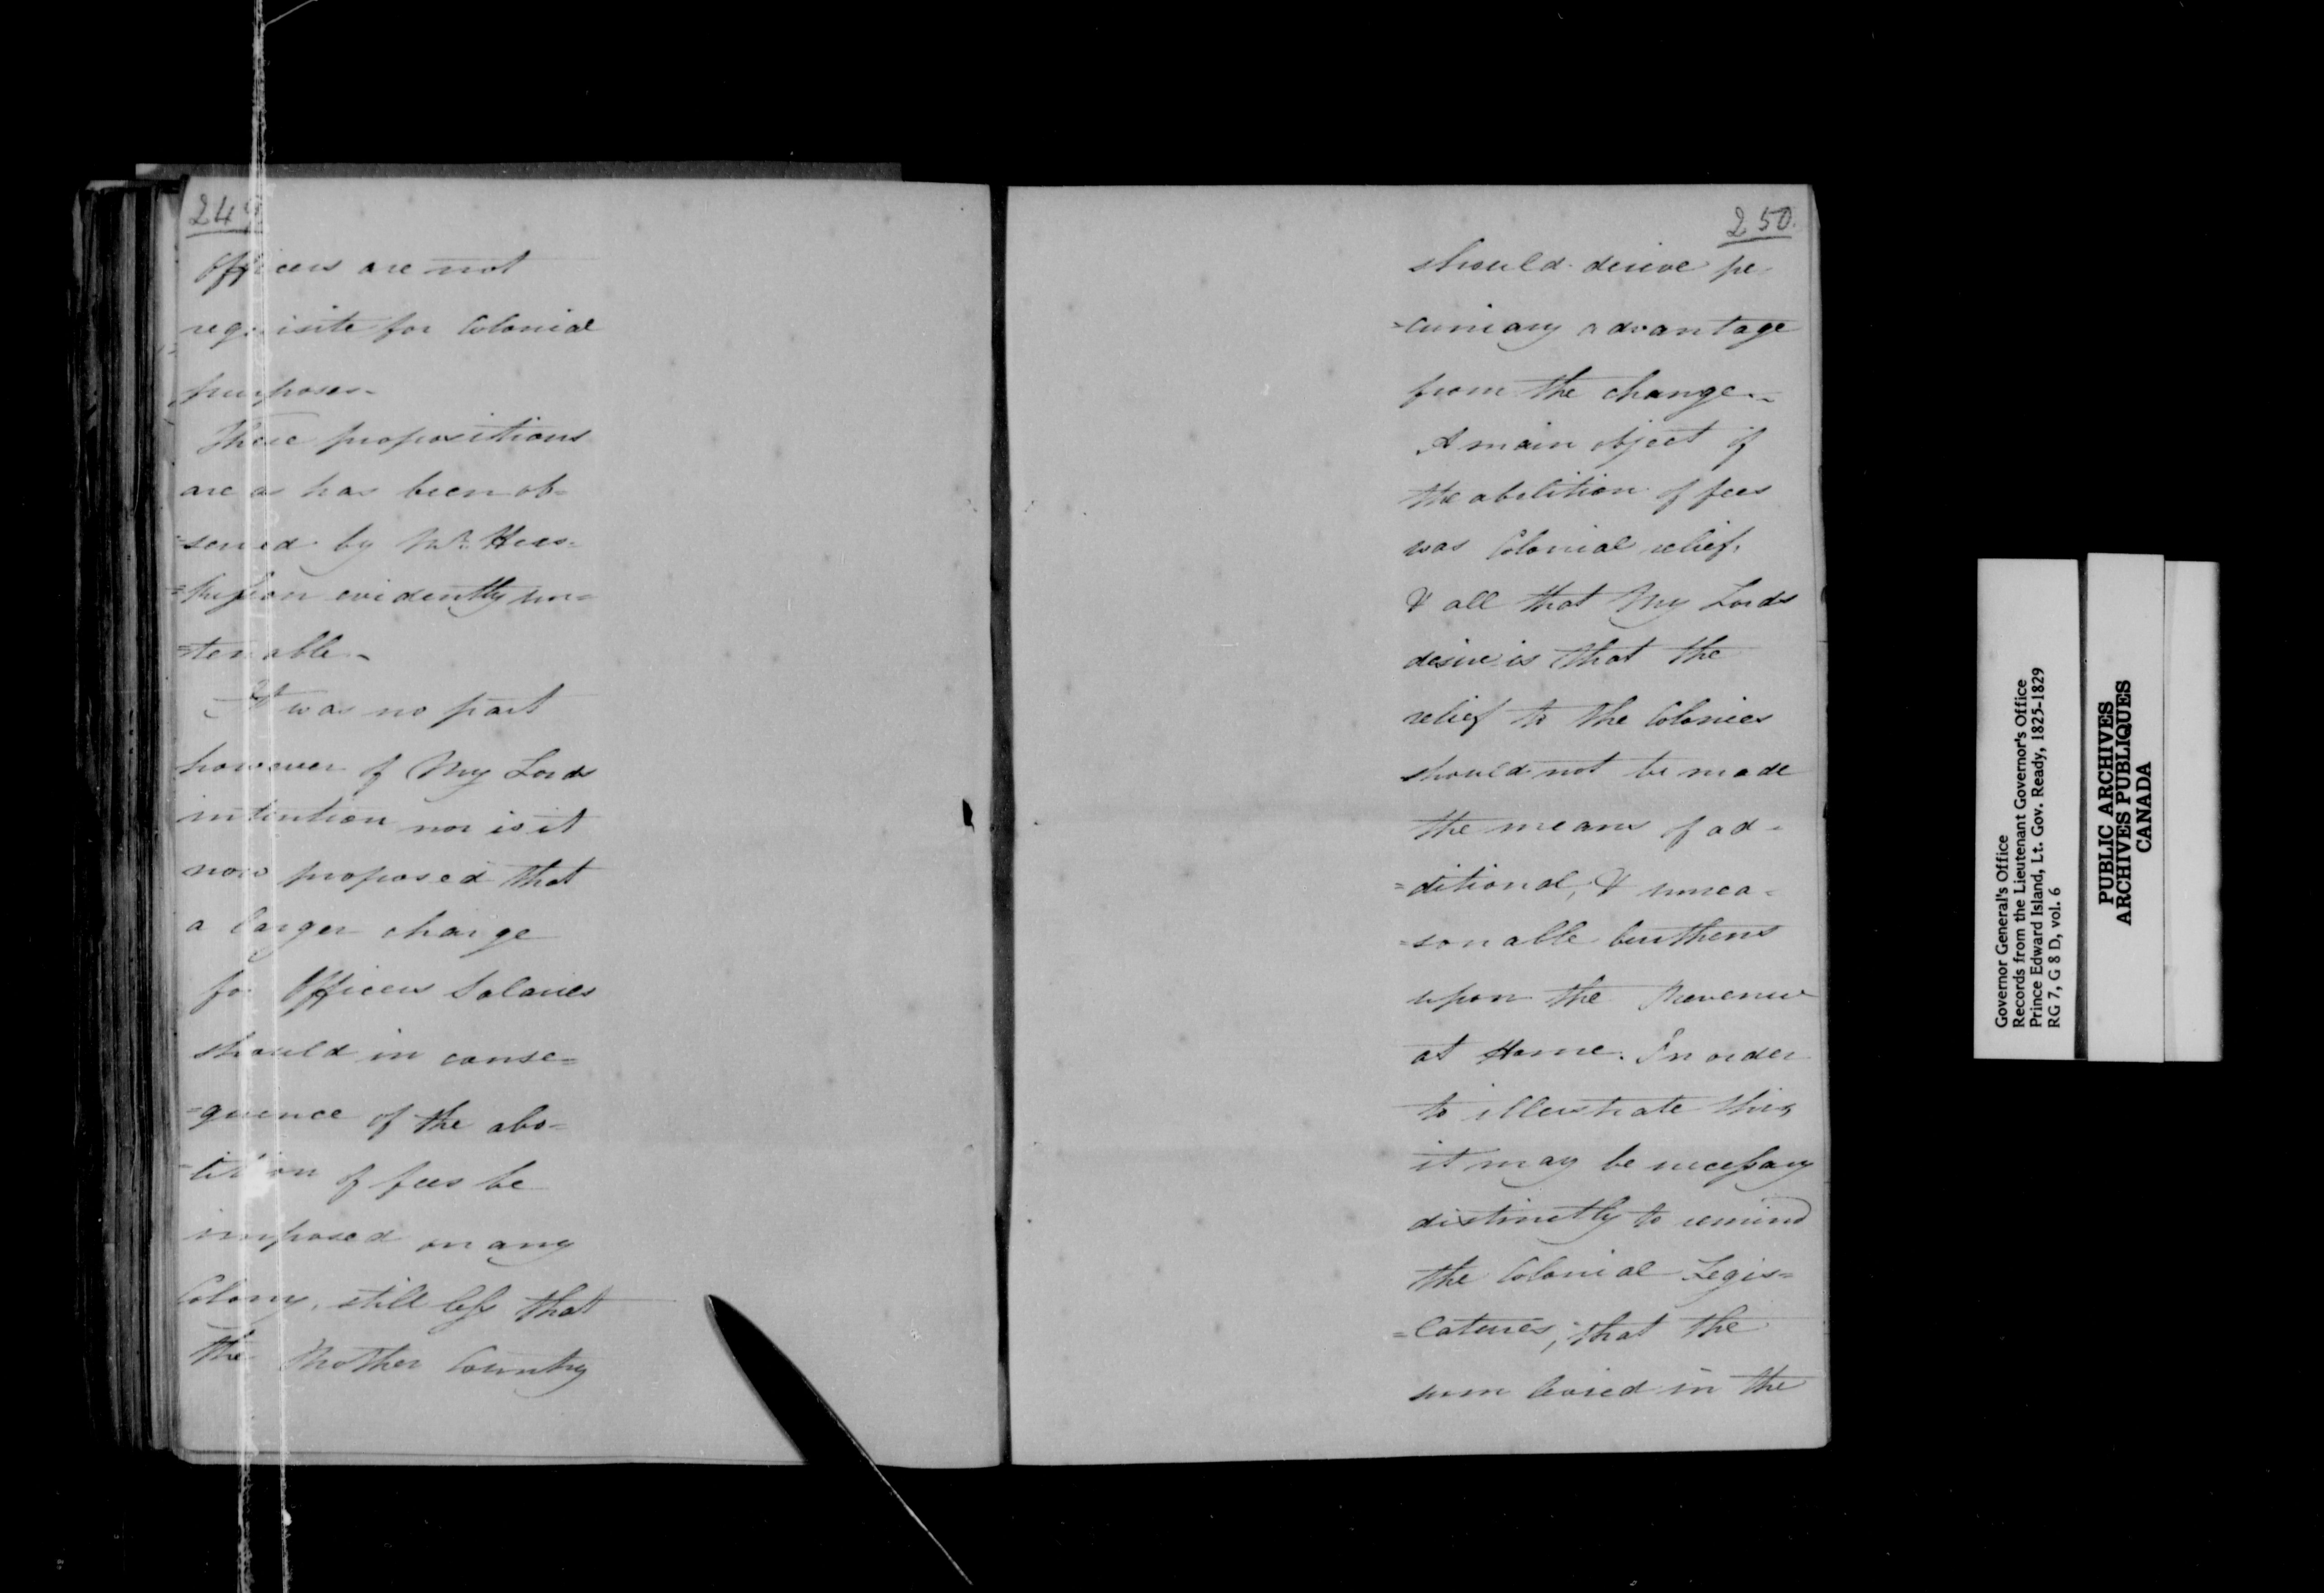 249
Officers are not
requisite for Colonial
purposes-
These propositions
are as has been ob-
=served by Mr. Hus=
=kisson evidently un=
=tenable-
It was no part
however of My Lords
intention nor is it
now proposed that
a larger charge
for Officers Salaries
should in conse=
=quence of the abo=
=lition of fees be
imposed on any
Colony, still less that
the Mother Country
250.
should derive pe
=cuniary advantage
from the change-
A main object of
the abolition of fees
was Colonial relief,
& all that My Lords
desire is that the
relief to the Colonies
should not be made
the means of ad-
=ditional, & unrea-
=sonable burthens
upon the Revenue
at Home. In order
to illustrate this,
it may be necessary
distinctly to remind
the Colonial Legis=
=latures, that the
sum levied in the
Governor General's Office
Records from the Lieutenant Governor's Office
Prince Edward Island, Lt. Gov. Ready, 1825-1829
RG 7, G 8 D, vol. 6
PUBLIC ARCHIVES
ARCHIVES PUBLIQUES
CANADA